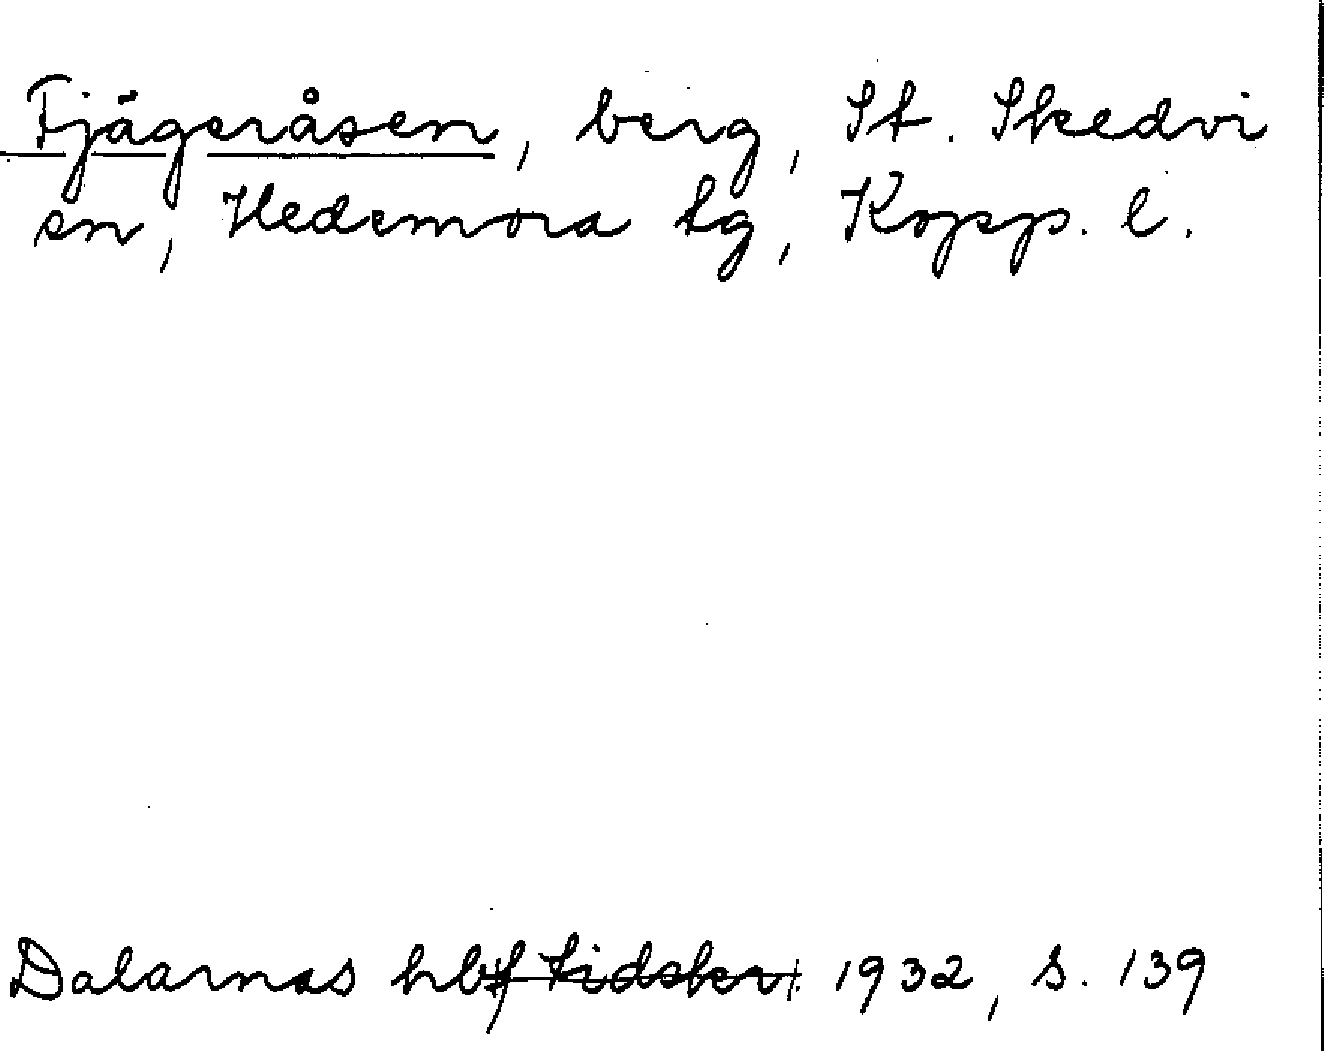 Fjägeråsen, berg, St. Skedvi
sn, Hedemora tg, Kopp. l.
Dalarnas hbf tidskr. 1932, s. 139